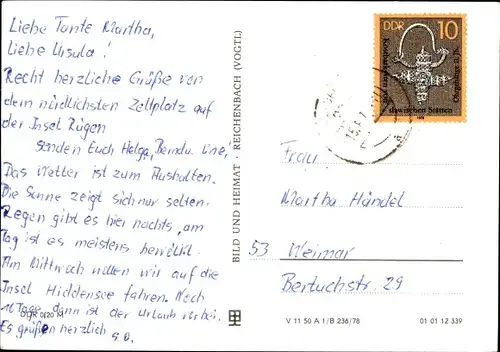 Liebe Tante Martha,
Liebe Ursula!
Recht herzliche Grüße von
dem nördlichsten Zeltplatz auf
der Insel Rügen
senden Euch Helga, Bernd u. Line!
Das Wetter ist zum Aushalten.
Die Sonne zeigt sich nur selten.
Regen gibt es hier nachts, am
Tag ist es meistens bewölkt.
Am Mittwoch wollen wir auf die
Insel Hiddensee fahren. Noch
10 Tage dann ist der Urlaub vorbei.
Es grüßen herzlich s. o.
DDR 0,20 M
BILD UND HEIMAT · REICHENBACH (VOGTL)
DDR 10
Kostbarkeiten aus
slawischen Stätten
Frau
Martha Händel
53 Weimar
Bertuchstr. 29
V 11 50 A 1/B 236/78
01 01 12 339